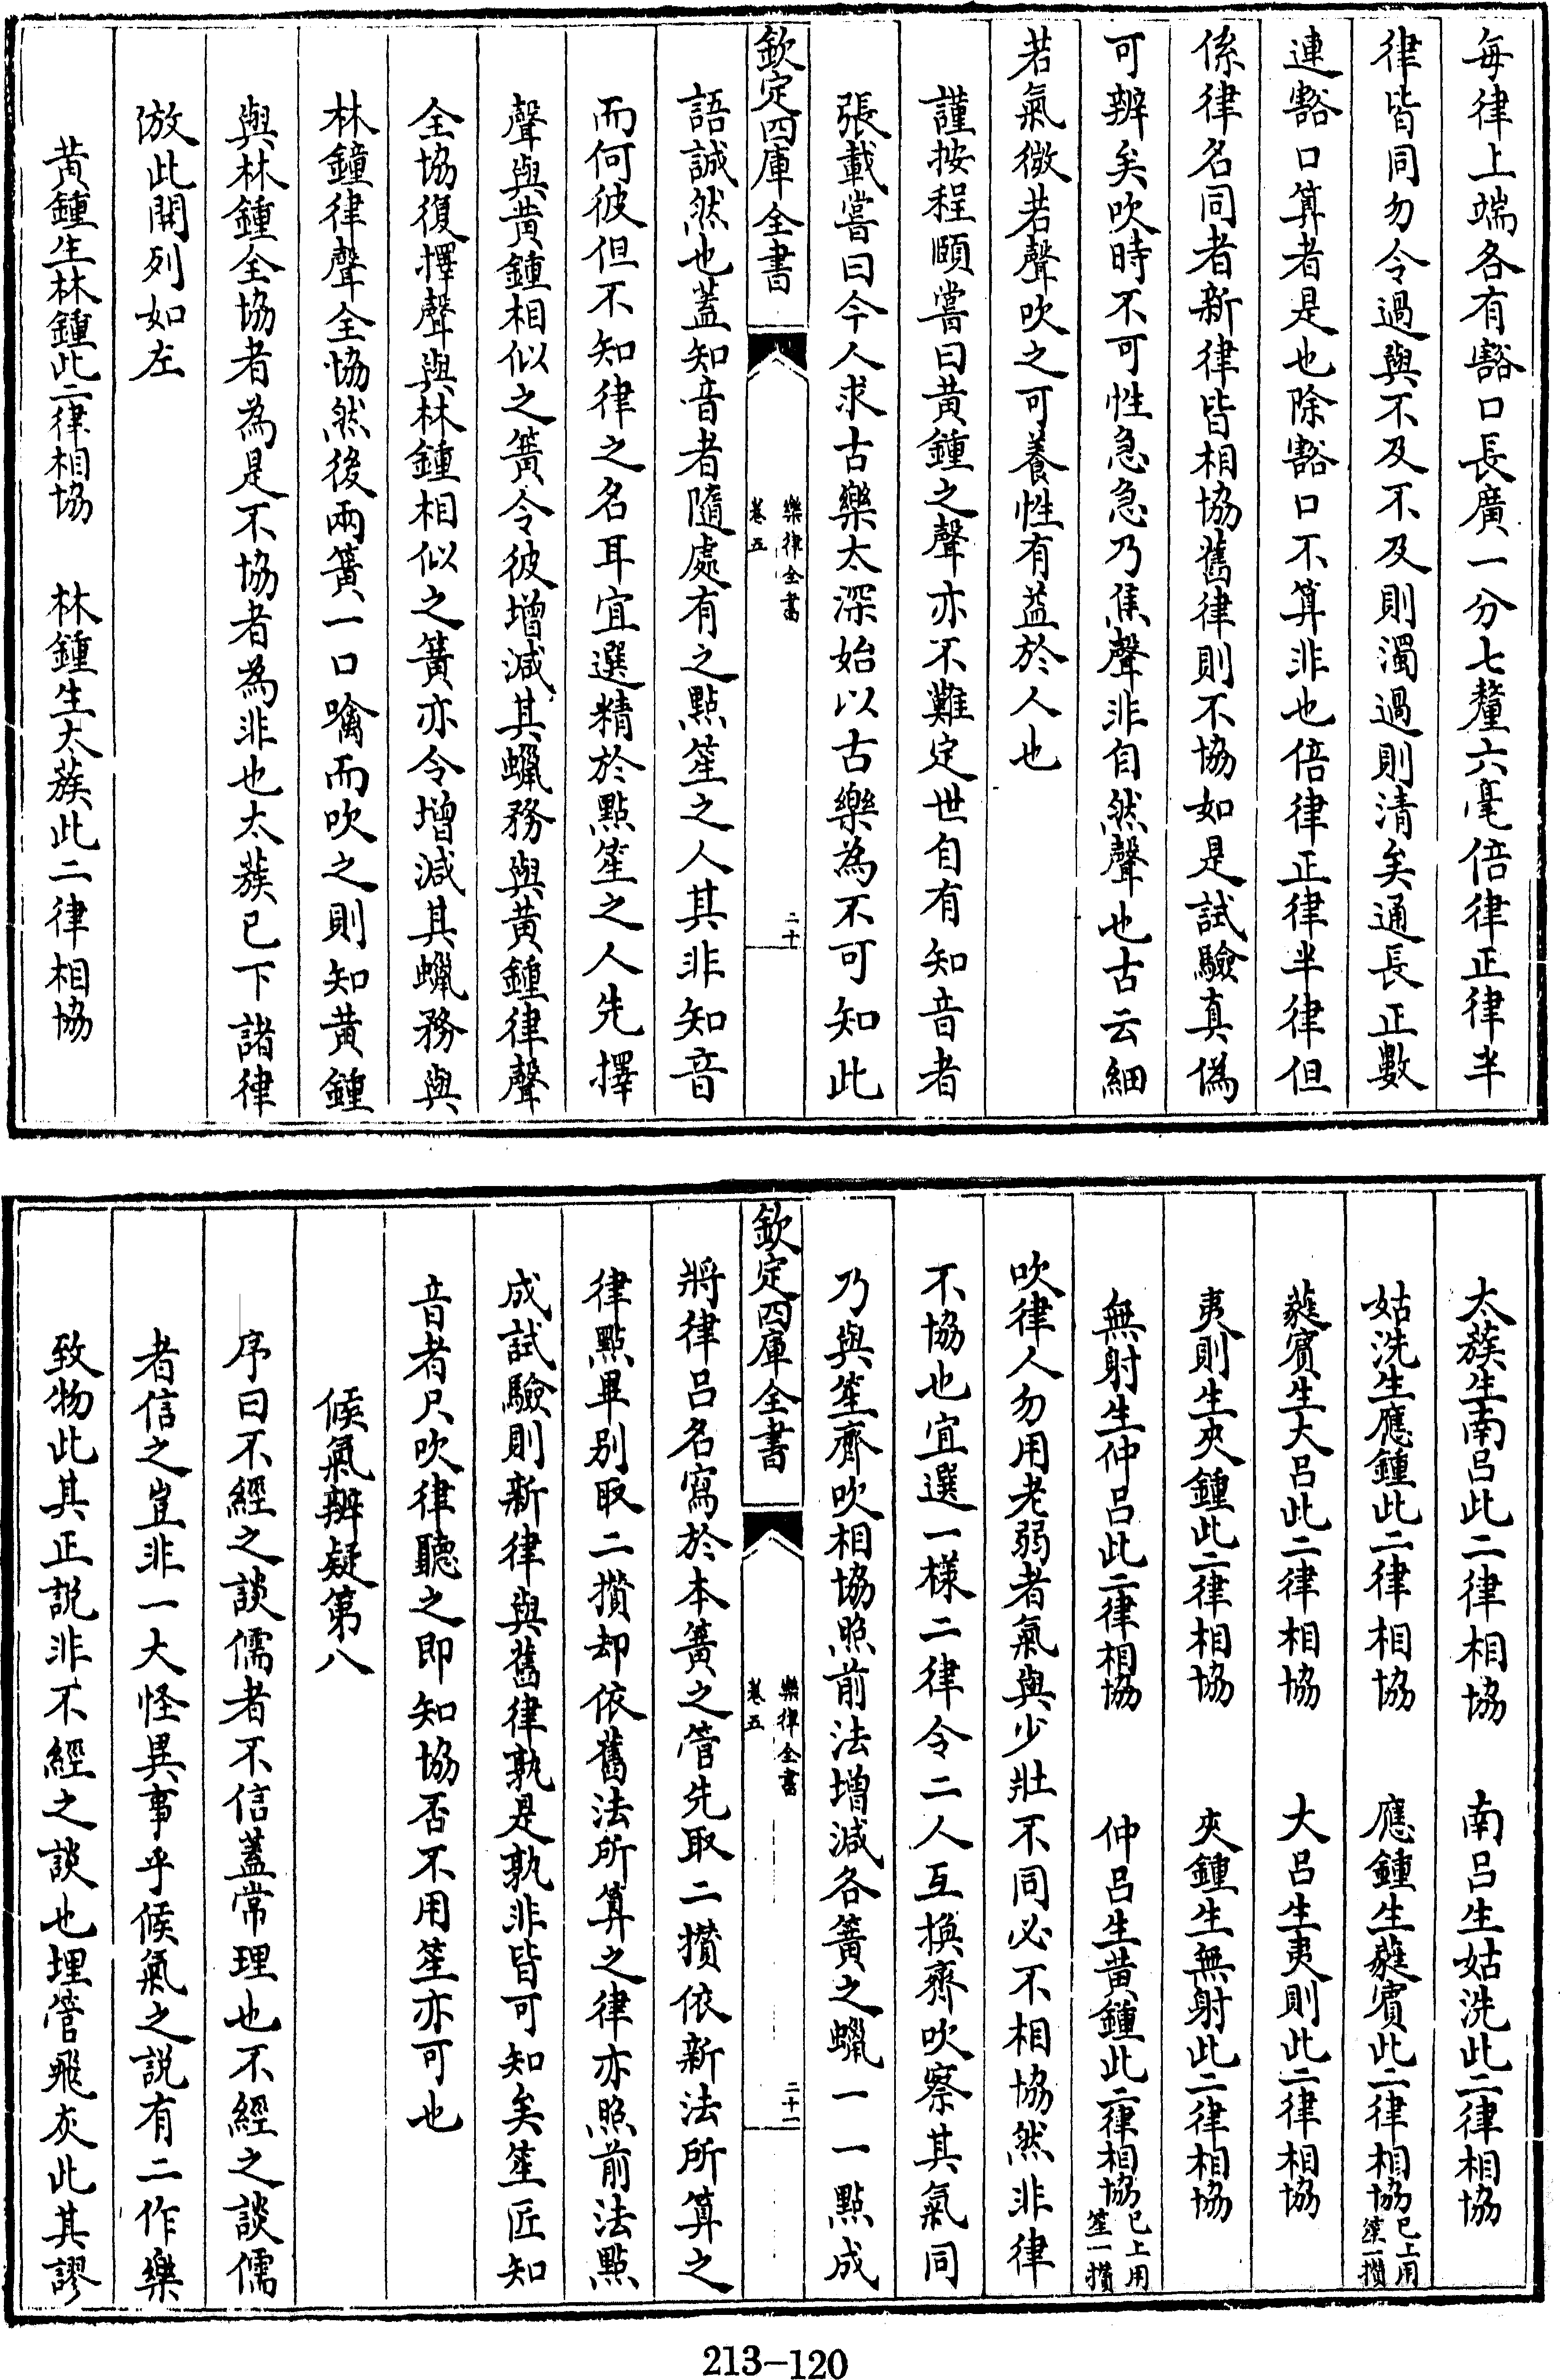 每律上端各有豁口長廣一分七釐六毫倍律正律半
律皆同勿令過與不及不及則濁過則清矣通長正數
連豁口算者是也除豁口不算非也倍律正律半律但
係律名同者新律皆相協舊律則不協如是試驗真偽
可辨矣吹時不可性急急乃焦聲非自然聲也古云細
若氣微若聲吹之可養性有益於人也
謹按程頤嘗曰黄鍾之聲亦不難定世自有知音者
張載嘗曰今人求古樂太深始以古樂為不可知此
欽定四庫全書
樂律全書
卷五
二十
語誠然也蓋知音者隨處有之點笙之人其非知音
而何彼但不知律之名耳宜選精於點笙之人先擇
聲與黄鍾相似之簧令彼增減其蠟務與黄鍾律聲
全協復擇聲與林鍾相似之簧亦令增減其蠟務與
林鐘律聲全協然後兩簧一口噙而吹之則知黄鍾
與林鍾全協者為是不協者為非也太蔟已下諸律
倣此開列如左
黄鍾生林鍾此二律相協　林鍾生太蔟此二律相協
太蔟生南吕此二律相協　南吕生姑洗此二律相協
姑洗生應鍾此二律相協　應鍾生蕤賓此二律相協已上用笙一攢
蕤賓生大吕此二律相協　大吕生夷則此二律相協
夷則生夾鍾此二律相協　夾鍾生無射此二律相協
無射生仲吕此二律相協　仲吕生黄鍾此二律相協已上用笙一攢
吹律人勿用老弱者氣與少壯不同必不相協然非律
不協也宜選一様二律令二人互换齊吹察其氣同
乃與笙齊吹相協照前法增減各簧之蠟一一點成
欽定四庫全書
樂律全書
卷五
二十一
將律吕名寫於本簧之管先取二攢依新法所算之
律點畢别取二攢却依舊法所算之律亦照前法點
成試驗則新律與舊律孰是孰非皆可知矣笙匠知
音者只吹律聽之即知協否不用笙亦可也
候氣辨疑第八
序曰不經之談儒者不信蓋常理也不經之談儒
者信之豈非一大怪異事乎候氣之説有二作樂
致物此其正説非不經之談也埋管飛灰此其謬
213-120